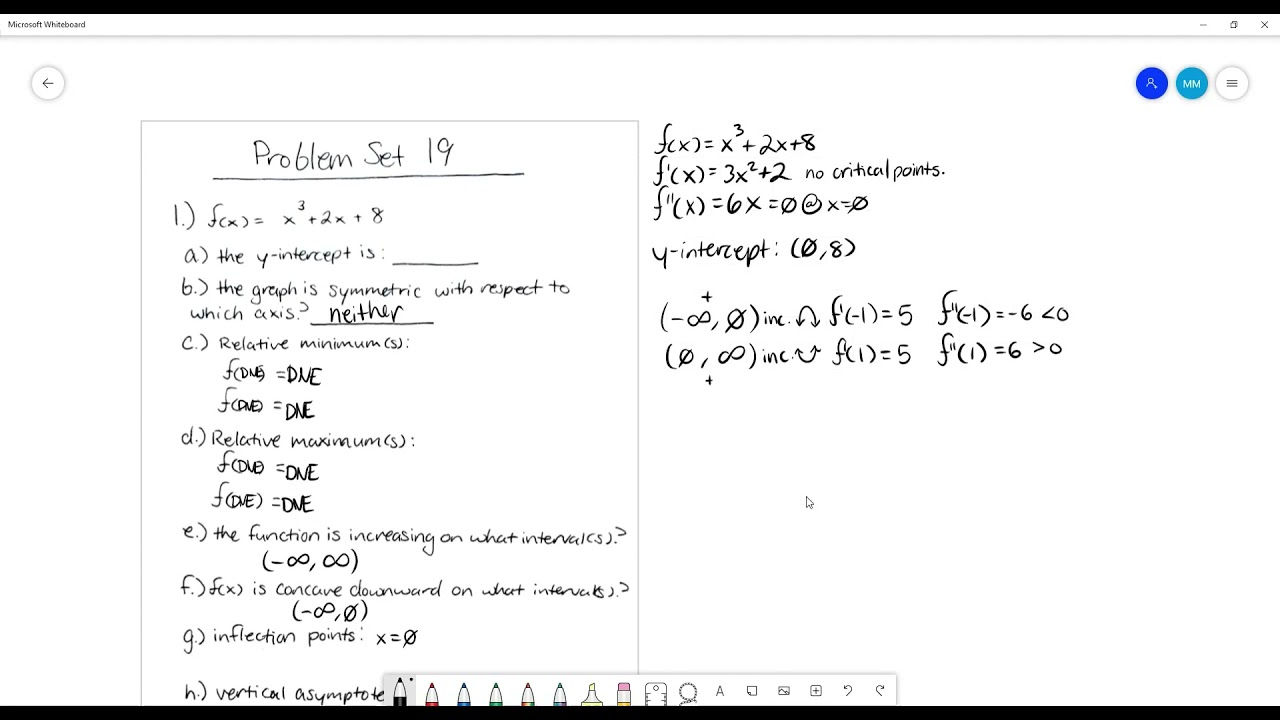 Microsoft Whiteboard
MM
Problem Set 19
1.) f(x) = x³ + 2x + 8
a.) the y-intercept is: ________
b.) the graph is symmetric with respect to
which axis? neither
c.) Relative minimum(s):
f(DNE) = DNE
f(DNE) = DNE
d.) Relative maximum(s):
f(DNE) = DNE
f(DNE) = DNE
e.) the function is increasing on what interval(s).?
(-∞, ∞)
f.) f(x) is concave downward on what interval(s).?
(-∞, Ø)
g.) inflection points: x = Ø
h.) vertical asymptote
f(x) = x³ + 2x + 8
f'(x) = 3x² + 2 no critical points.
f''(x) = 6x = Ø @ x = Ø
y-intercept: (Ø, 8)
+
(-∞, Ø) inc. f'(-1) = 5 f''(-1) = -6 < 0
(Ø, ∞) inc. f'(1) = 5 f''(1) = 6 > 0
+
A